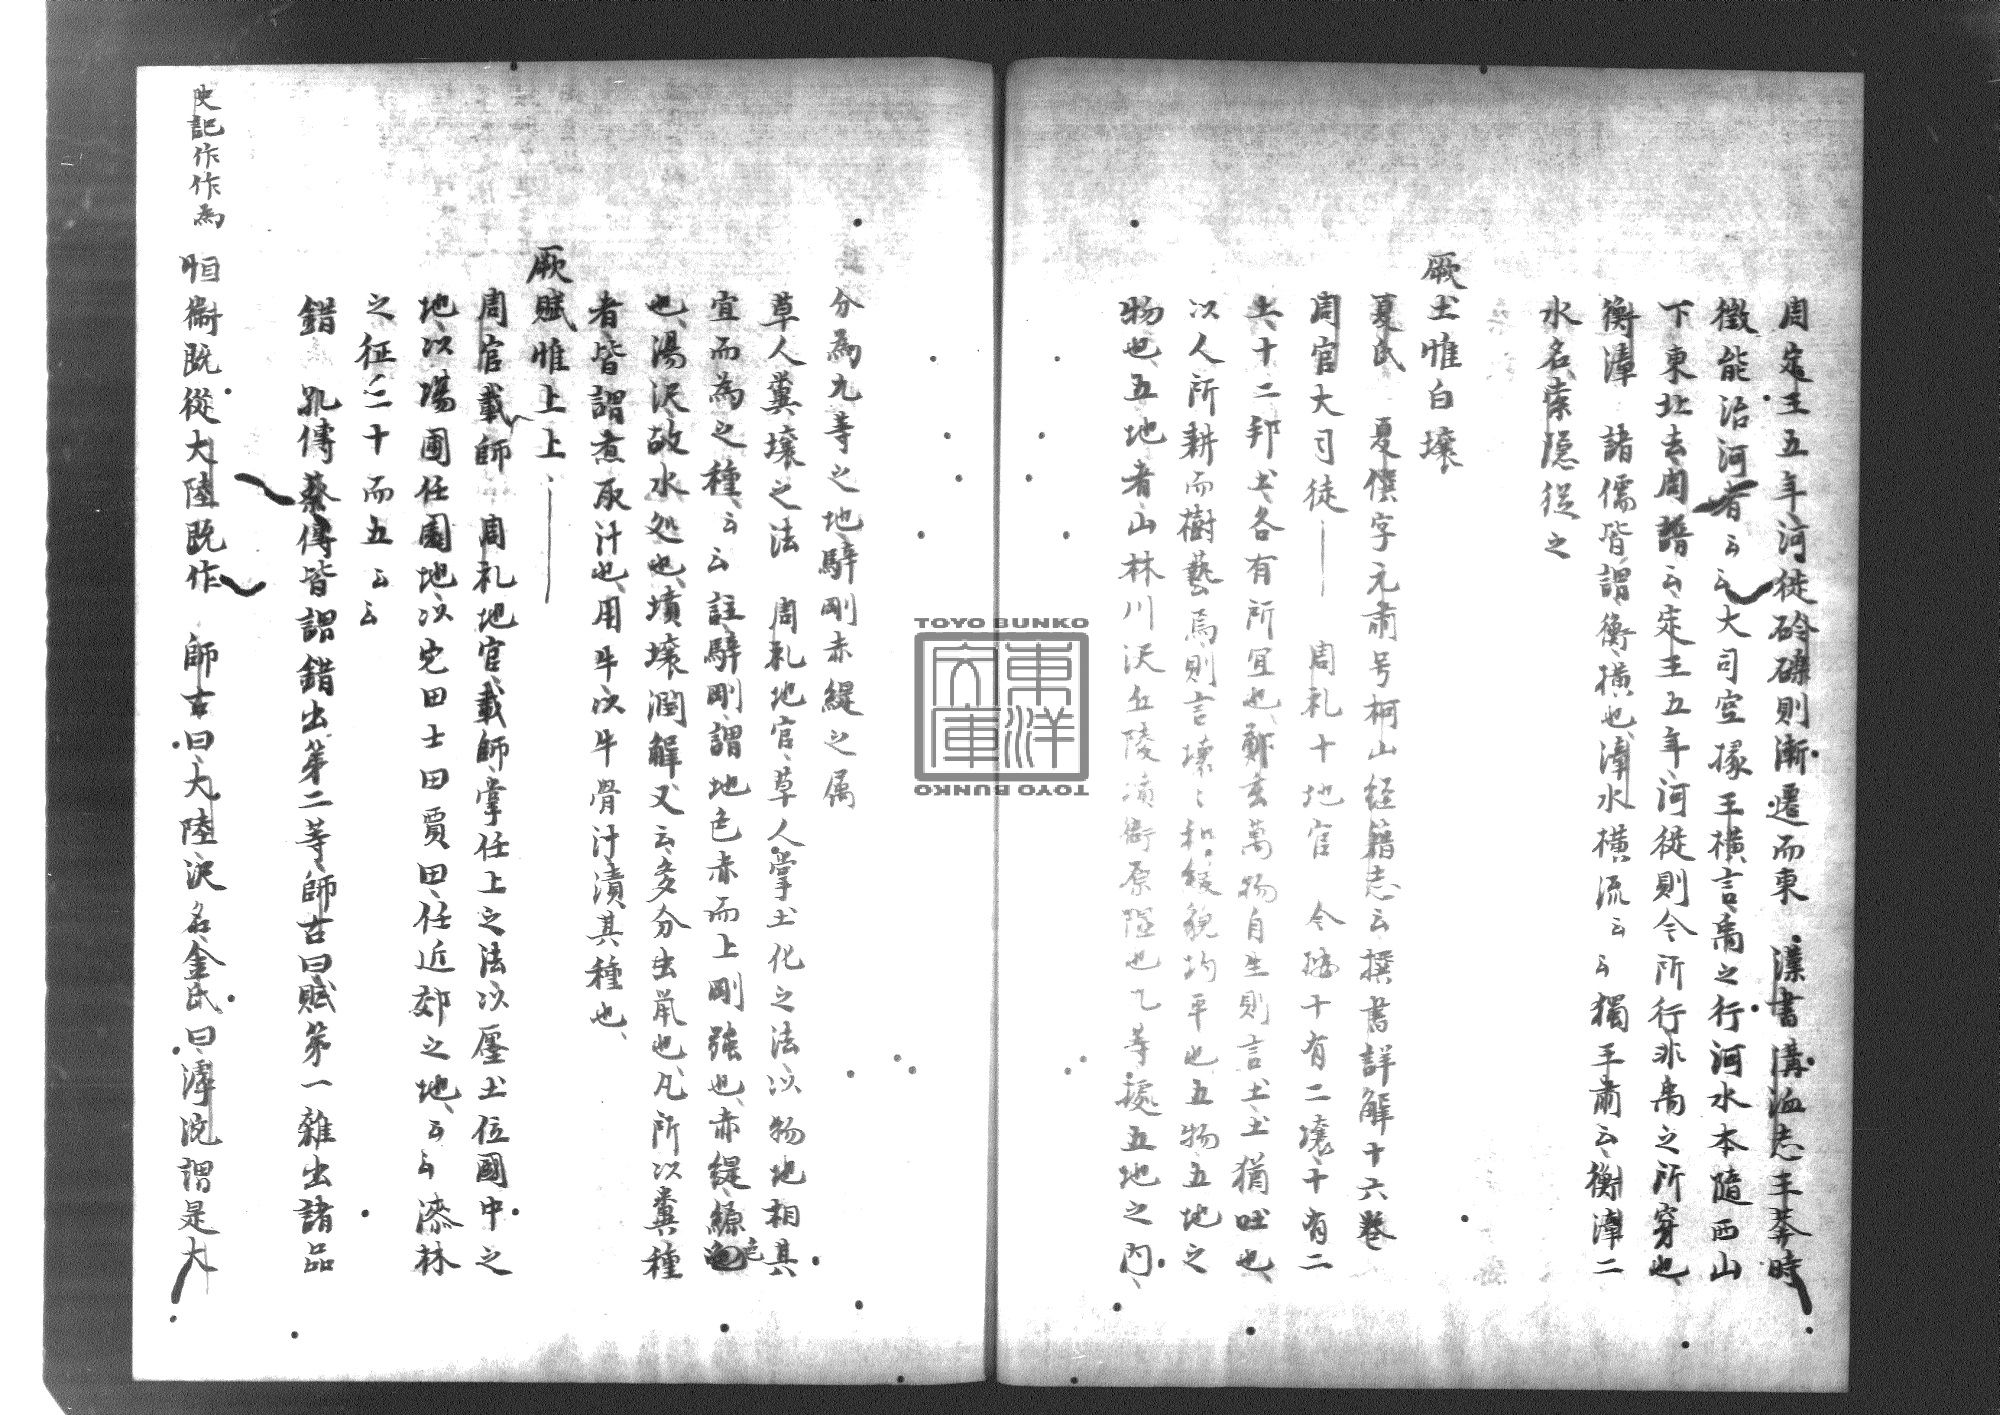 周定王五年河徙砱礫則漸遷而東　漢書溝洫志王莽時
徵能治河者云云大司空掾王横言禹之行河水本隨西山
下東北去周譜云定王五年河徙則今所行非禹之所穿也
衡漳　諸儒皆謂衡横也漳水横流云云獨王肅云衡漳二
水名索隠従之
厥土惟白壌
夏氏　夏僎字元肅号柯山経籍志云撰書詳解十六巻
周官大司徒――　周礼十地官　令　十有二壌十有二
土十二邦土各有所宜也鄭玄萬物自生則言土土猶吐也
以人所耕而樹藝焉則言壌壌和緩貌均平也五物五地之
物也五地者山林川沢丘陵濆衍原隰也九等擾五地之内
分為九等之地騂剛赤緹之属
草人糞壌之法　周礼地官草人掌土化之法以物地相其
宜而為之種云云註騂剛謂地色赤而上剛強也赤緹縓色
也湯沢故水処也墳壌潤解又云多分出鼠也凡所以糞種
者皆謂煮取汁也用牛以牛骨汁漬其種也
厥賦惟上上――
周官載師　周礼地官載師掌任上之法以壓土位國中之
地以場圃任園地以宅田士田賈田任近郊之地云云漆林
之征二十而五云云
錯　孔傳蔡傳皆謂錯出第二等師古曰賦第一雜出諸品
恒衛既從大陸既作　師古曰大陸沢名金氏曰滹沱謂是大
史記作作為
TOYO BUNKO
東洋文庫
TOYO BUNKO